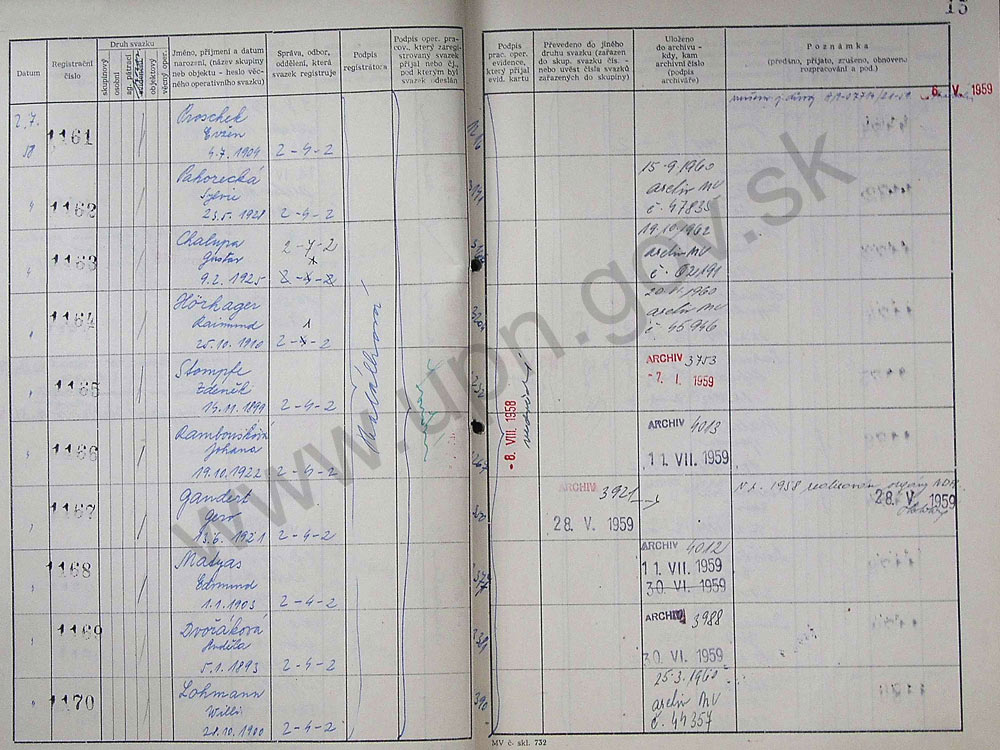 15
Datum
Registrační číslo
Druh svazku
skupinový
osobní
ag. pátrací
objektový
věcný oper.
Jméno, příjmení a datum
narození, (název skupiny
neb objektu - heslo věc-
ného operativního svazku)
Správa, odbor,
oddělení, která
svazek registruje
Podpis
registrátora
Podpis oper. pra-
cov., který zaregi-
stroivaný svazek
přijal nebo čj.,
pod kterým byl
svazek odeslán
Podpis
prac. oper.
evidence,
který přijal
evid. kartu
Převedeno do jiného
druhu svazku (zařazen
do skup. svazku čís. -
nebo uvést čísla svazků
zařazených do skupiny)
Uloženo
do archivu -
kdy, kam
archivní číslo
(podpis
archiváře)
Poznámka
(předáno, přijato, zrušeno, obnoveno
rozpracování a pod.)
6. V. 1959
2.7.
58
1161
Proschek
Evžen
4.7. 1904
2-4-2
1162
Pahorecká
Sylvie
23.5. 1928
2-4-2
15-9.1960
archiv MV
č. 47835
1163
Chalupa
Gustav
9.2. 1925
2-7-2
19.10.1962
archiv MV
č. 02191
1164
Hörhager
Raimund
25.10. 1910
1
2-x-2
20.11.1960
archiv MV
č. 45946
1165
Stompfe
Zdeněk
15.11. 1899
2-4-2
ARCHIV 3753
-7. I. 1959
1166
Johana
19.10. 1922
2-4-2
ARCHIV 4013
11. VII. 1959
-8. VIII. 1958
1167
Gandert
Gero
13.6. 1921
2-4-2
ARCHIV 3921
28. V. 1959
28. V. 1959
1168
Matyas
Edmund
1.1. 1903
2-4-2
ARCHIV 4012
11. VII. 1959
30. VI. 1959
1169
Dvořáková
Anděla
5.1. 1893
2-4-2
ARCHIV 3988
30. VI. 1959
1170
Lohmann
Willi
28.10. 1900
2-4-2
25.3.1960
archiv MV
č. 44357
MV č. skl. 732
www.upn.gov.sk